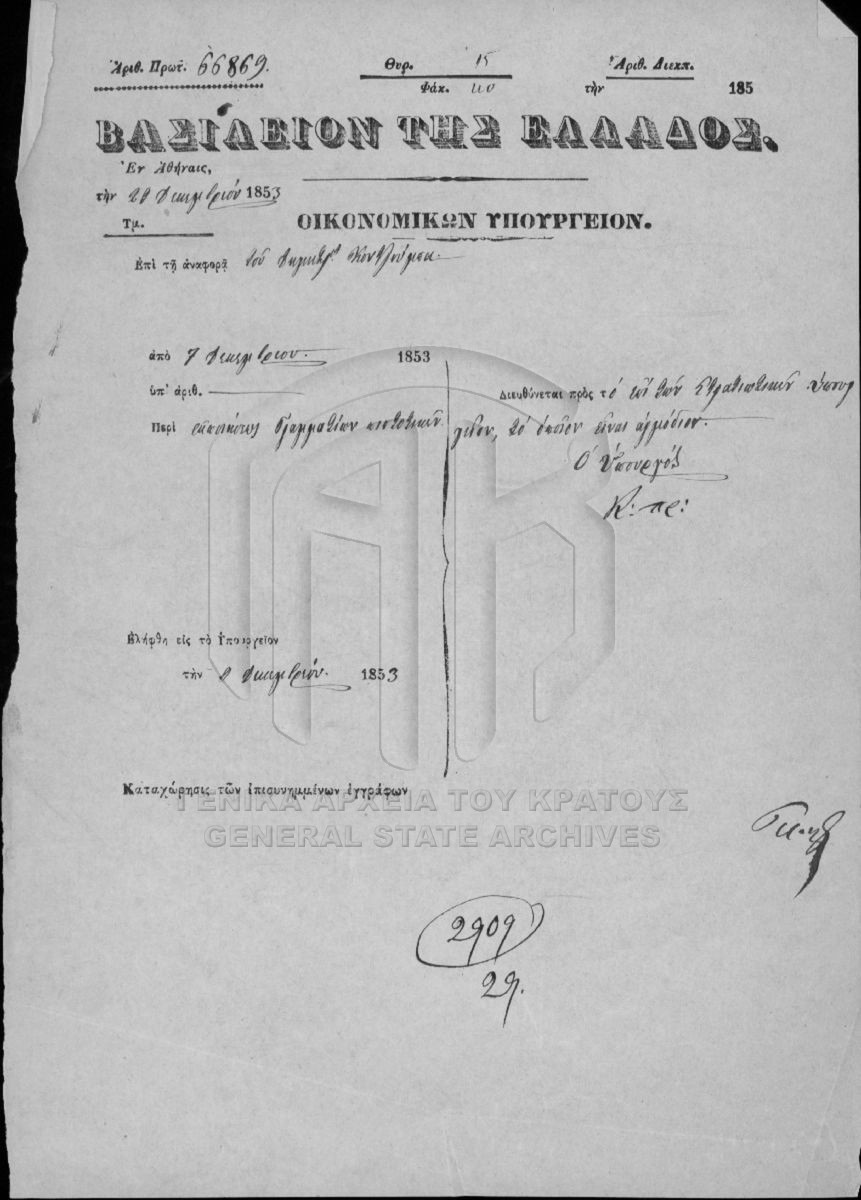 Ἀριθ. Πρωτ. 66869.
Θυρ. 15
Φάκ. 110
Ἀριθ. Διεκπ.
τὴν 185
ΒΑΣΙΛΕΙΟΝ ΤΗΣ ΕΛΛΑΔΟΣ.
Ἐν Ἀθήναις,
τὴν 20 Δεκεμβρίου 1853
Τμ.
ΟΙΚΟΝΟΜΙΚΩΝ ΥΠΟΥΡΓΕΙΟΝ.
Ἐπὶ τῇ ἀναφορᾷ τοῦ
ἀπὸ 7 Δεκεμβρίου 1853
ὑπ' ἀριθ.
Περὶ γραμματίων πιστωτικῶν
Διευθύνεται πρὸς τὸ ἐπὶ τῶν Στρατιωτικῶν Ὑπουρ
γεῖον, τὸ ὁποῖον εἶναι ἁρμόδιον.
Ὁ Ὑπουργὸς
Ἐλήφθη εἰς τὸ Ὑπουργεῖον
τὴν Δεκεμβρίου 1853
Καταχώρησις τῶν ἐπισυνημμένων ἐγγράφων
ΓΕΝΙΚΑ ΑΡΧΕΙΑ ΤΟΥ ΚΡΑΤΟΥΣ
GENERAL STATE ARCHIVES
2909
29.